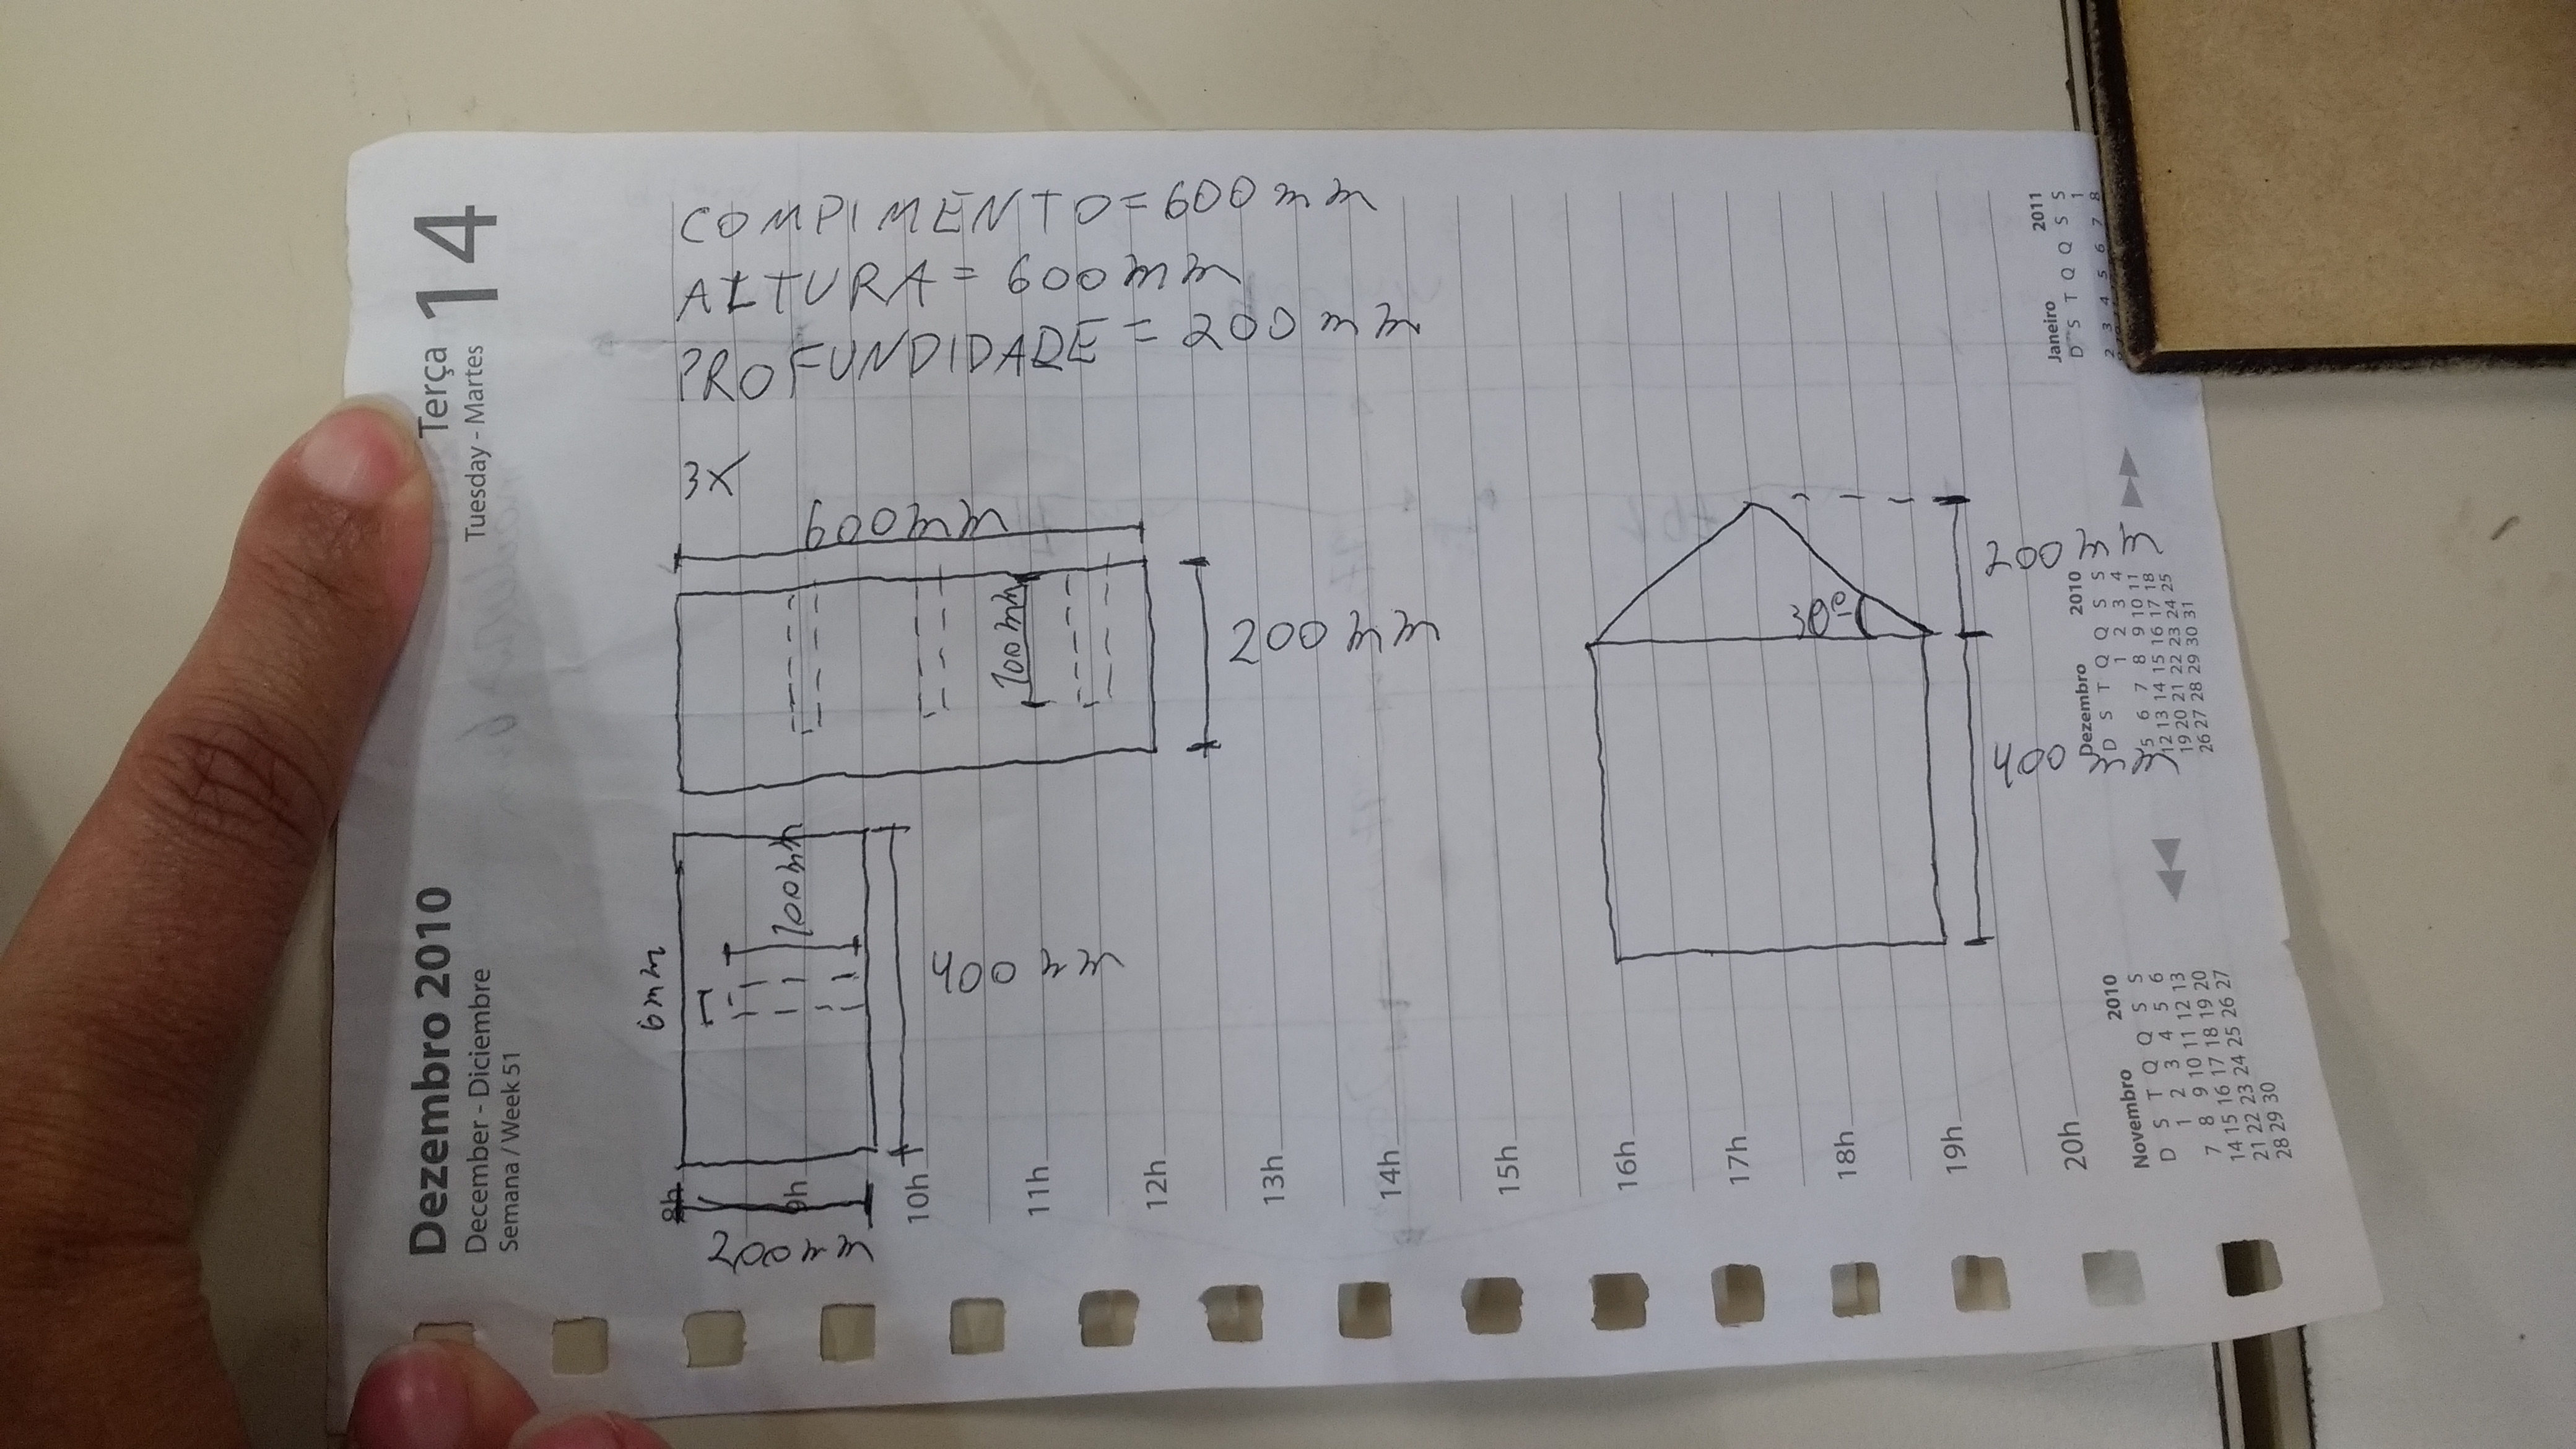 Dezembro 2010
December - Diciembre
Semana / Week 51
Terça 14
Tuesday - Martes
COMPIMENTO = 600 mm
ALTURA = 600 mm
PROFUNDIDADE = 200 mm
3X
600mm
100mm
200 mm
6mm
100mm
400 mm
200mm
200 mm
30º
400 mm
8h
9h
10h
11h
12h
13h
14h
15h
16h
17h
18h
19h
20h
Novembro 2010
D S T Q Q S S
1 2 3 4 5 6
7 8 9 10 11 12 13
14 15 16 17 18 19 20
21 22 23 24 25 26 27
28 29 30
Dezembro 2010
D S T Q Q S S
1 2 3 4
5 6 7 8 9 10 11
12 13 14 15 16 17 18
19 20 21 22 23 24 25
26 27 28 29 30 31
Janeiro 2011
D S T Q Q S S
1
2 3 4 5 6 7 8